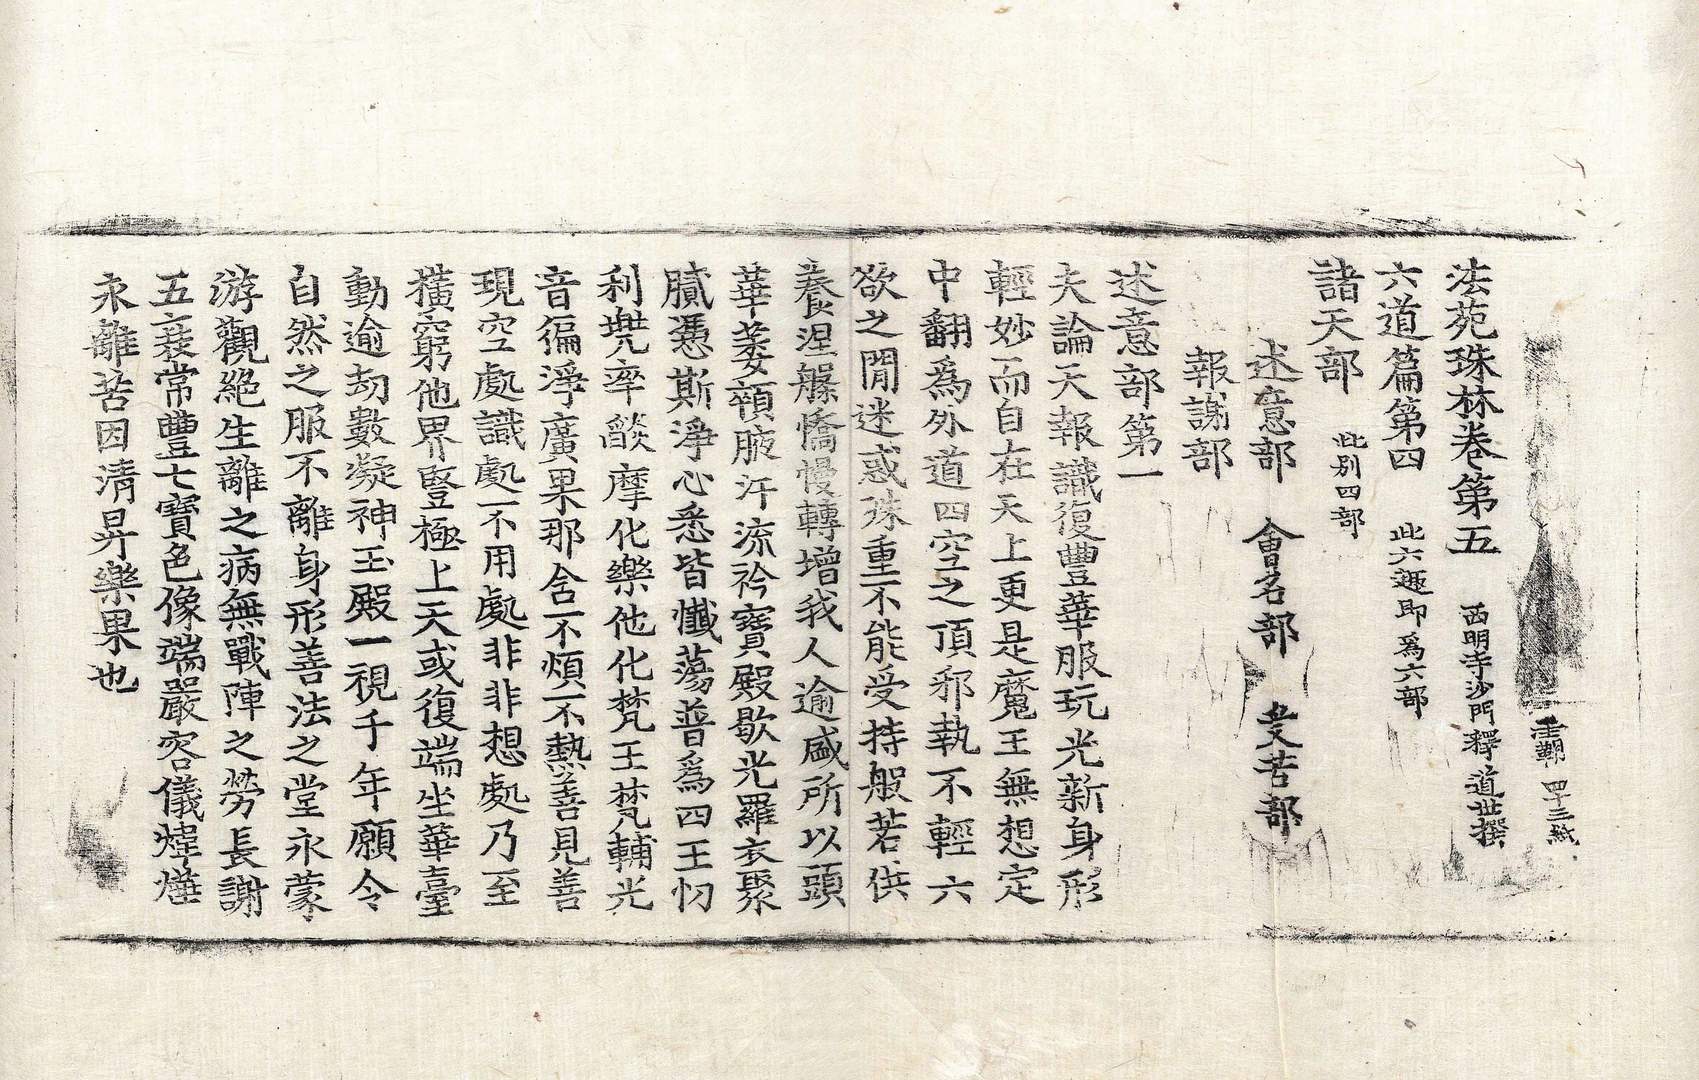 法苑珠林卷第五 西明寺沙門釋道世撰
六道篇第四 此六趣即為六部
諸天部 此別四部
述意部 會名部 受苦部
報謝部
述意部第一
夫論天報識復豐華服玩光新身形
輕妙而自在天上更是魔王無想定
中翻為外道四空之頂邪執不輕六
欲之閒迷惑殊重不能受持般若供
養涅槃憍慢轉增我人逾盛所以頭
華萎顇腋汗流衿寶殿歇光羅衣聚
膩憑斯淨心悉皆懺蕩普為四王忉
利兜率燄摩化樂他化梵王梵輔光
音徧淨廣果那含不煩不熱善見善
現空處識處不用處非非想處乃至
橫窮他界豎極上天或復端坐華臺
動逾劫數凝神玉殿一視千年願令
自然之服不離身形善法之堂永蒙
游觀絕生離之病無戰陣之勞長謝
五衰常豐七寶色像端嚴容儀煒燁
永離苦因清昇樂果也
四十三紙